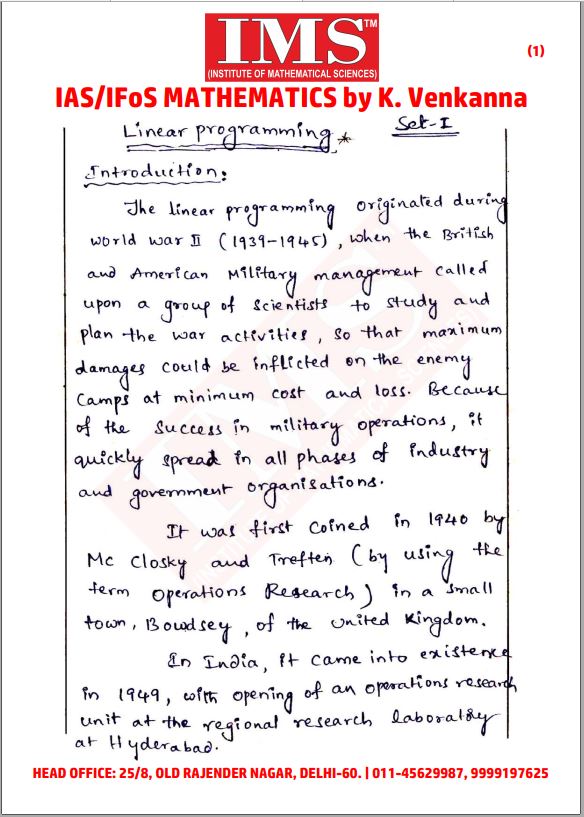 IMS™
(INSTITUTE OF MATHEMATICAL SCIENCES)
(1)
IAS/IFoS MATHEMATICS by K. Venkanna
Linear programming * Set-I
Introduction:
The linear programming originated during
world war II (1939-1945), when the British
and American Military management called
upon a group of scientists to study and
plan the war activities, so that maximum
damages could be inflicted on the enemy
camps at minimum cost and loss. Because
of the success in military operations, it
quickly spread in all phases of industry
and government organisations.
It was first coined in 1940 by
Mc Closky and Treften (by using the
term operations Research) in a small
town, Bowdsey, of the United Kingdom.
In India, it came into existence
in 1949, with opening of an operations research
unit at the regional research laboratory
at Hyderabad.
HEAD OFFICE: 25/8, OLD RAJENDER NAGAR, DELHI-60. | 011-45629987, 9999197625